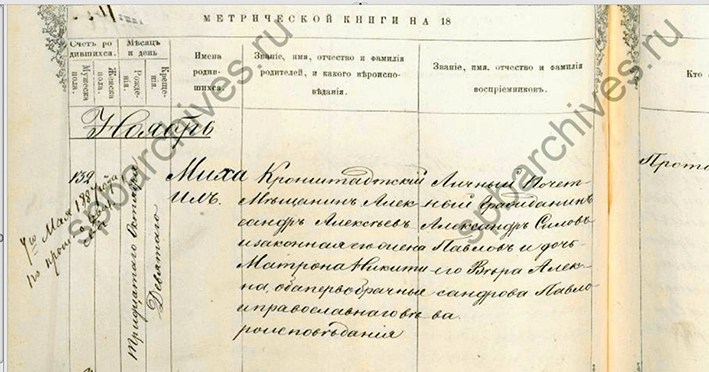 МЕТРИЧЕСКОЙ КНИГИ НА 18
Счетъ родившихся.
Мужеска пола.
Женска пола.
Мѣсяцъ и день
Рожденія.
Крещенія.
Имена родившихся.
Званіе, имя, отчество и фамилія родителей, и какого вѣроисповѣданія.
Званіе, имя, отчество и фамилія воспріемниковъ.
Кто
Ноябрь
139
Тридцатаго Октября
Девятаго
Миха
илъ.
Кронштадтскій
Мѣщанинъ Алек-
сандръ Алексѣевъ
и законная его жена
Матрона Никити
на, оба первобрачные
и православнаго вѣ
роисповѣданія
Личный Почет
ный Гражданинъ
Александръ Силовъ
Павловъ и дочь
его Вѣра Алек-
сандрова Павло
ва.
Прото
7го Мая
spbarchives.ru
spbarchives.ru
spbarchives.ru